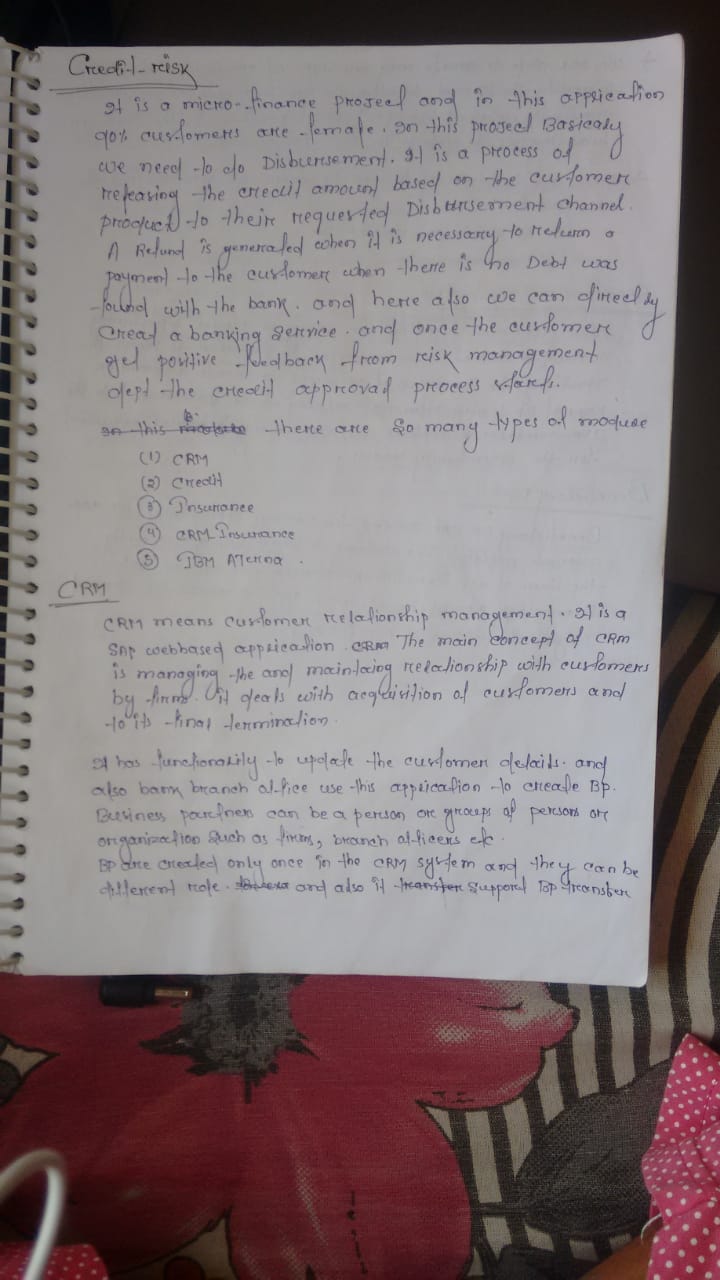 Credit-risk
It is a micro-finance project and in this application
90% customers are female. In this project Basically
we need to do Disbursement. It is a process of
releasing the credit amount based on the customer
product to their requested Disbursement channel.
A Refund is generated when it is necessary to return a
payment to the customer when there is no Debt was
found with the bank. and here also we can directly
Creat a banking service. and once the customer
get positive feedback from risk management
dept the credit approval process starts.
In this there are so many types of module
(1) CRM
(2) Credit
(3) Insurance
(4) CRM Insurance
(5) IBM ATerna.
CRM
CRM means customer relationship management. It is a
SAP webbased application. CRM The main concept of CRM
is managing the and maintaing relationship with customers
by firms. it deals with acquisition of customers and
to its final termination.
It has functionality to update the customer details. and
also bank branch office use this application to create BP.
Business partners can be a person or groups of persons or
organization such as firms, branch officers etc.
BP are created only once in the CRM system and they can be
different role. and also it transfer support BP transfer